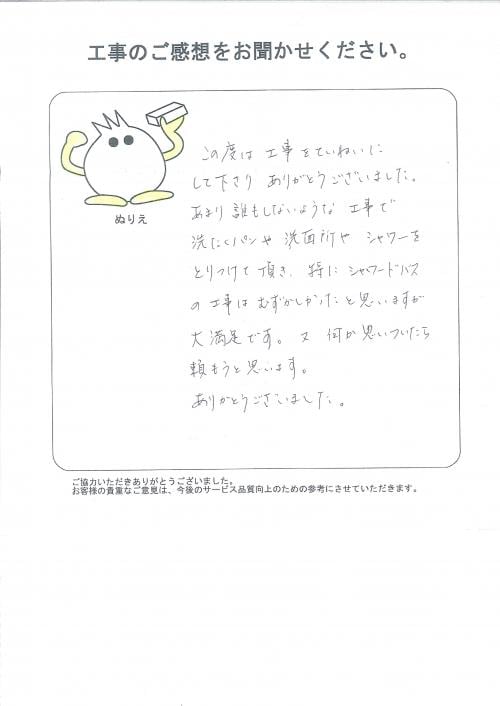 工事のご感想をお聞かせください。
ぬりえ
この度は工事をていねいに
して下さり ありがとうございました。
あまり誰もしないような工事で
洗たくパンや 洗面所や シャワーを
とりつけて頂き、特に シャワードバス
の工事はむずかしかったと思いますが
大満足です。又 何か思いついたら
頼もうと思います。
ありがとうございました。
ご協力いただきありがとうございました。
お客様の貴重なご意見は、今後のサービス品質向上のための参考にさせていただきます。